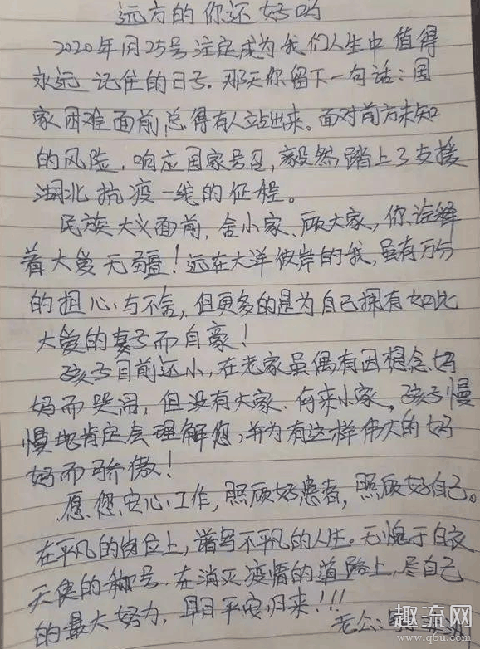 远方的你还好吗
2020年1月25号注定成为我们人生中值得
永远记住的日子。那天你留下一句话：国
家困难面前总得有人站出来。面对前方未知
的风险，响应国家号召，毅然踏上了支援
湖北抗疫一线的征程。
民族大义面前，舍小家、顾大家，你诠释
着大爱无疆！远在大洋彼岸的我，虽有万分
的担心与不舍，但更多的是为自己拥有如此
大爱的妻子而自豪！
孩子目前还小，在老家虽偶有因想念妈
妈而哭闹，但没有大家，何来小家，孩子慢
慢地肯定会理解您，并为有这样伟大的妈
妈而骄傲！
愿您安心工作，照顾好患者，照顾好自己。
在平凡的岗位上，谱写不平凡的人生。无愧于白衣
天使的称号，在消灭疫情的道路上，尽自己
的最大努力，早日平安归来！！！
老公：
趣流网
www.q6u.com